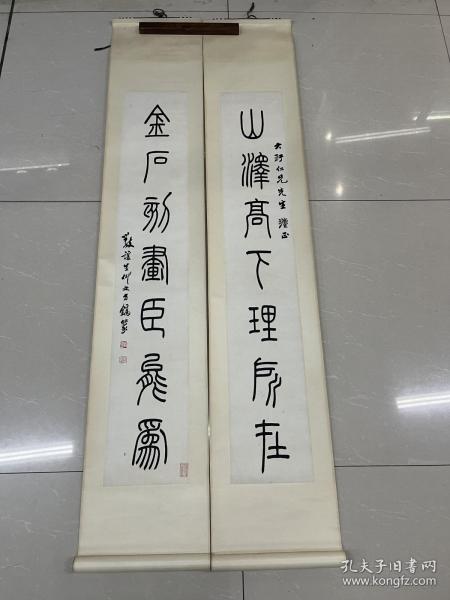 山澤高下理所在
大可仁兄先生 雅正
金石刻畫臣能為
孔夫子旧书网
www.kongfz.com